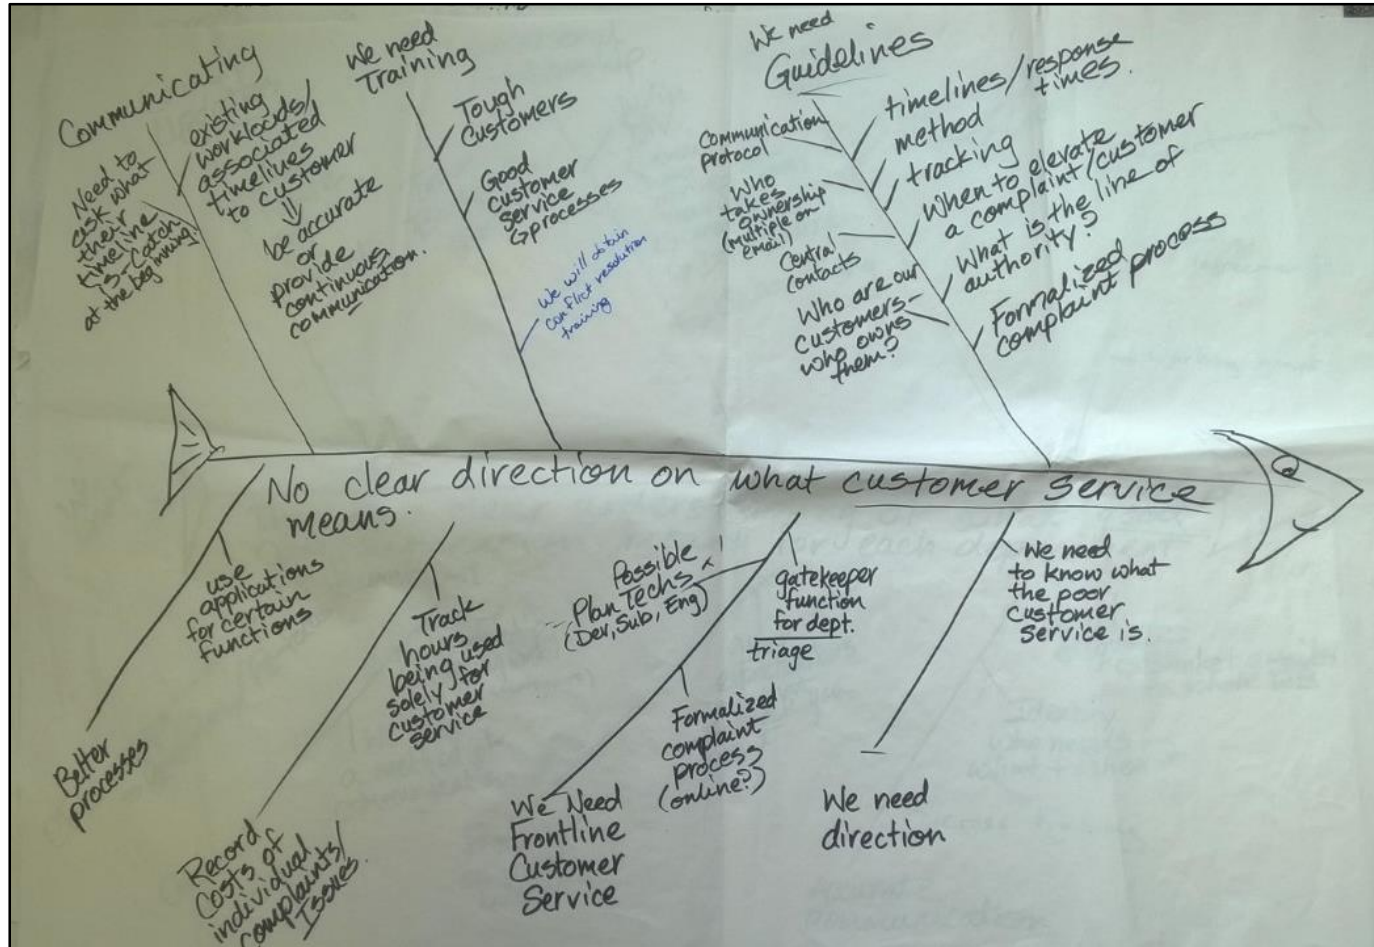 Communicating
Need to
ask what
their
timeline
is - Catch
at the beginning!
existing
workloads/
associated
timelines
to customer
be accurate
or
provide
continuous
communication.
We need
Training
Tough
Customers
Good
customer
service
processes
We will obtain
conflict resolution
training
We need
Guidelines
Communication
protocol
Who
takes
ownership
(multiple on
email)
Central
contacts
Who are our
customers -
who owns
them?
timelines/response
times.
method
tracking
When to elevate
a complaint/customer
What is the line of
authority?
Formalized
complaint process
No clear direction on what customer service
means.
use
applications
for certain
functions
Better
processes
Track
hours
being used
solely for
customer
service
Record
Costs of
individual
complaints/
Issues.
Possible
Plan Techs
(Dev, Sub, Eng)
gatekeeper
function
for dept.
triage
Formalized
complaint
process
(online?)
We Need
Frontline
Customer
Service
We need
to know what
the poor
customer
service is.
We need
direction